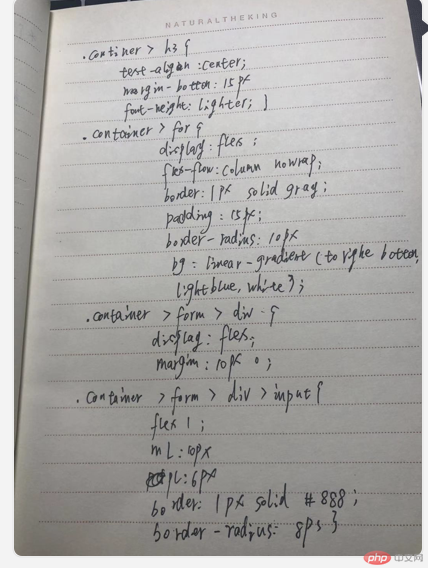 NATURALTHEKING
.container > h3 {
test-align : center;
margin-bottom: 15px
font-weight: lighter; }
. container > for {
display: flex ;
flex-flow: column nowrap;
border: 1px solid gray;
padding : 15px;
border-radius: 10px
bg : linear-gradient (to righe botton,
lightblue, white } ;
.container > form > div {
display: flex;
margin: 10px 0 ;
. container > form > div > input {
flex 1 ;
mL: 10px
pL: 6px
border: 1px solid #888 ;
border-radius: 8ps }
php 中文网